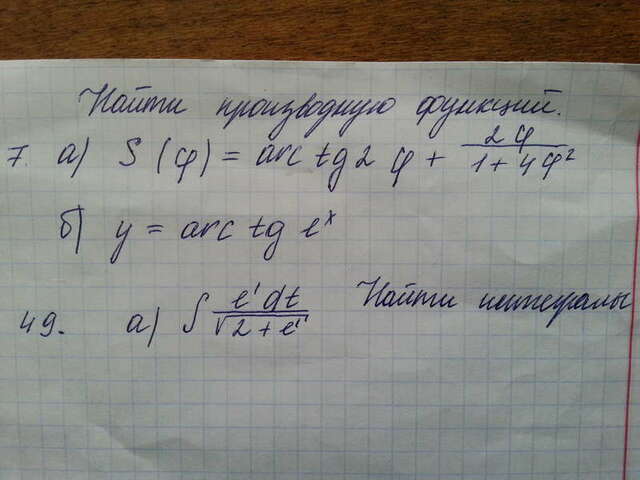 Найти производную функций.
7. а) S (φ) = arc tg 2 φ + 2φ / 1 + 4φ²
б) y = arc tg eˣ
49. а) ∫ e' dt / √2 + e' Найти интегралы